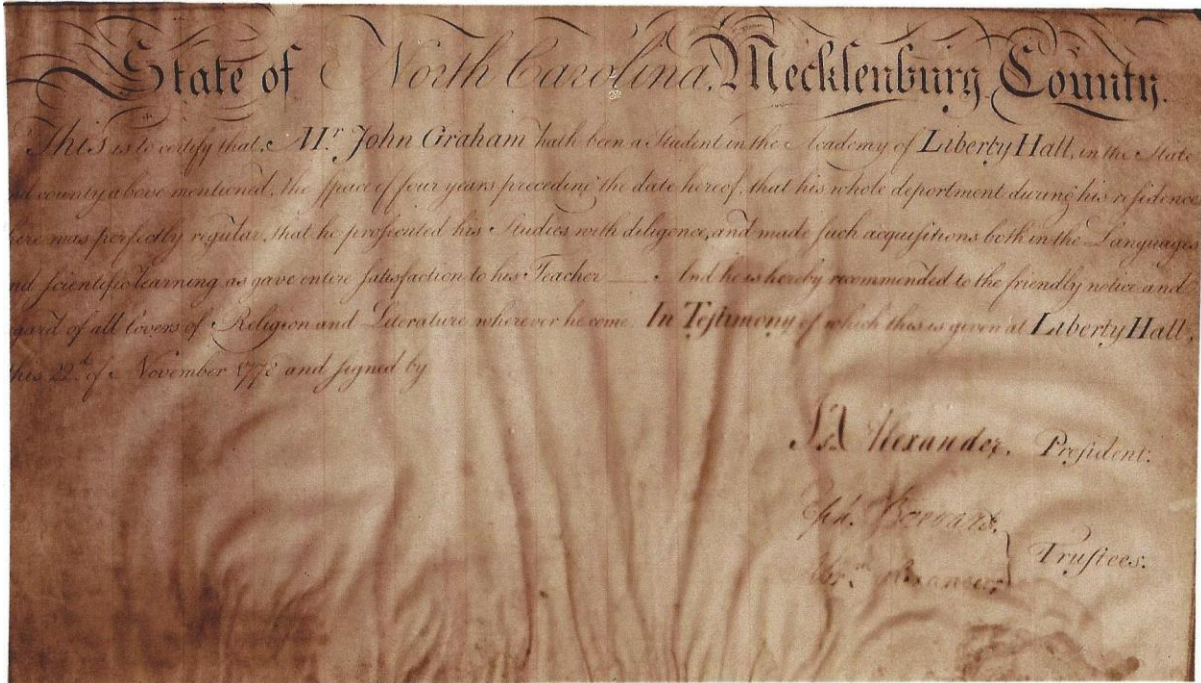 State of North Carolina, Mecklenburg County.
This is to certify that, Mr. John Graham hath been a Student in the Academy of Liberty Hall, in the State
and county above mentioned, the space of four years preceding the date hereof, that his whole deportment during his residence
here was perfectly regular, that he prosecuted his Studies with diligence, and made such acquisitions both in the Languages
and scientific learning as gave entire satisfaction to his Teacher — And he is hereby recommended to the friendly notice and
regard of all lovers of Religion and Literature wherever he come. In Testimony of which this is given at Liberty Hall,
this 22d of November 1778 and signed by
Isa Alexander. President.
Eph. Brevard.
Trustees.
Abrm Alexander